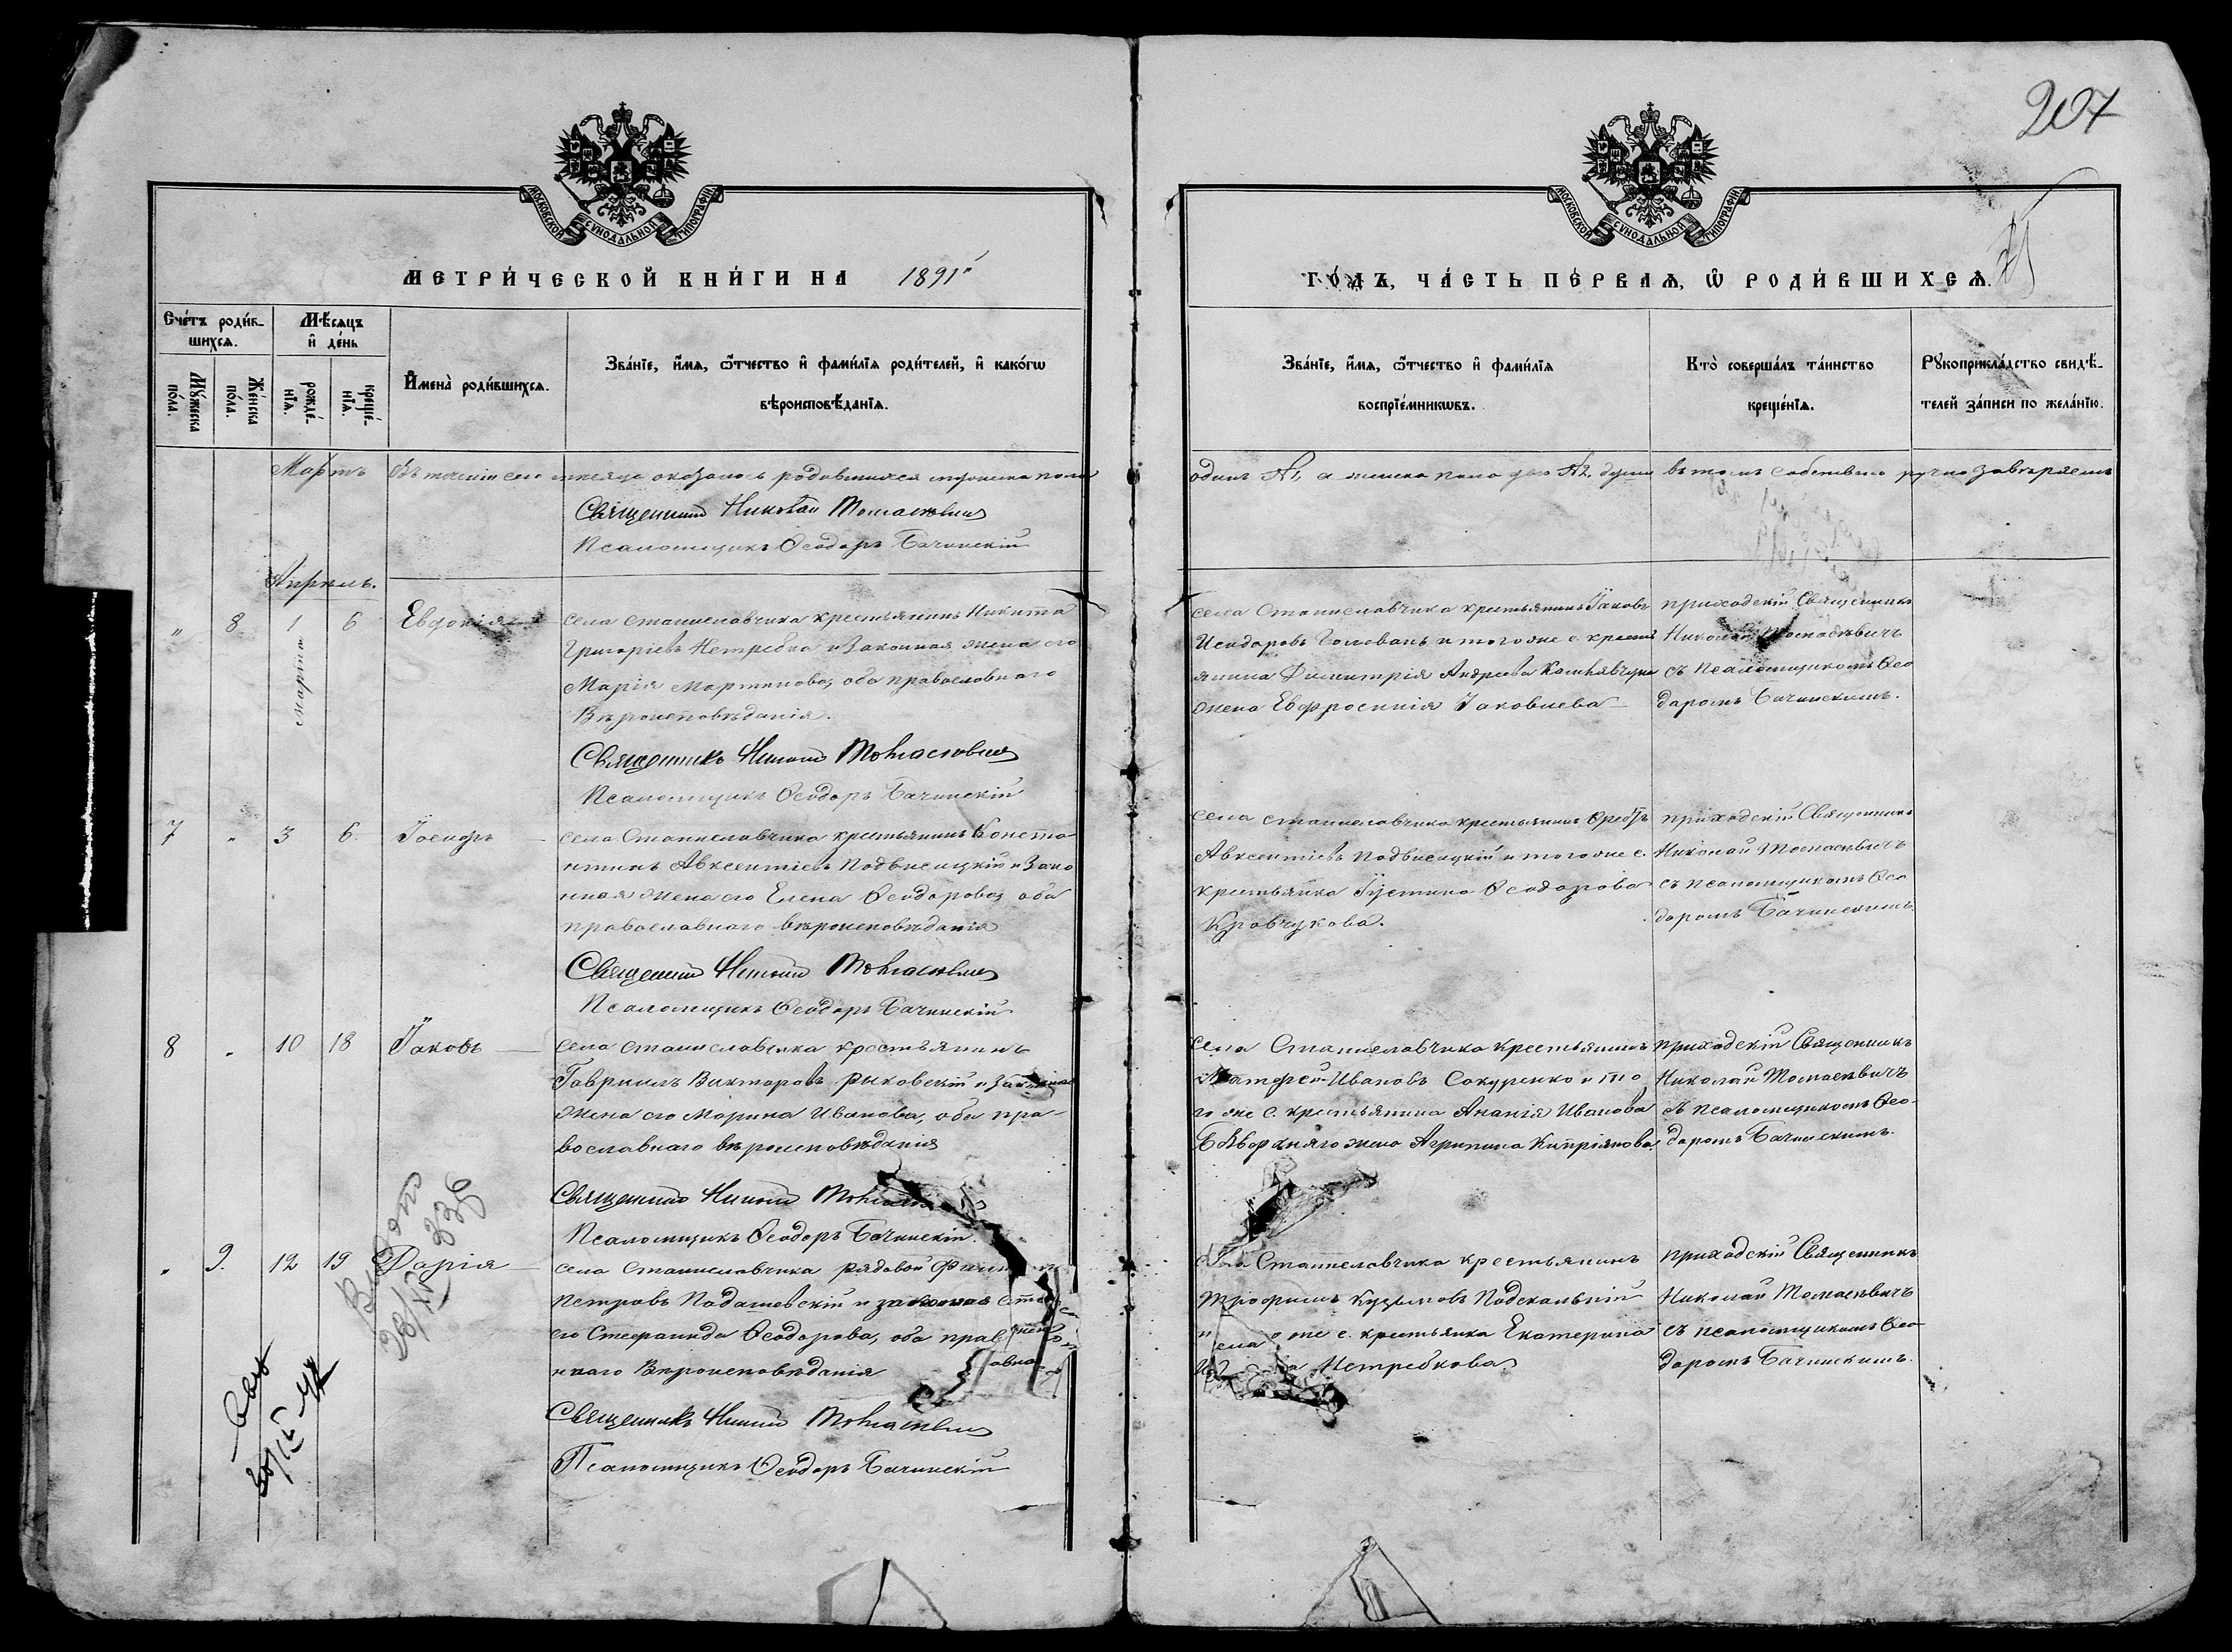 207
МОСКОВСКОЙ СѴНОДАЛЬНОЙ ТИПОГРАФІИ
МОСКОВСКОЙ СѴНОДАЛЬНОЙ ТИПОГРАФІИ
МЕТРИ́ЧЕСКОЙ КНИ́ГИ НА 1891 г.
ГО́ДЪ, ЧА́СТЬ ПЕ́РВАѦ, Ѡ҆ РОДИ́ВШИХСѦ.
Сче́тъ роди́в-
шихсѧ.
Мѣ́сѧцъ
и҆ де́нь
Мꙋ́жеска
по́ла.
Же́нска
по́ла.
рожде́-
нїѧ.
креще́-
нїѧ.
И҆мена̀ роди́вшихсѧ.
Зва́нїе, и҆́мѧ, ѻ҆́тчество и҆ фами́лїѧ роди́телей, и҆ како́гѡ
вѣроисповѣ́данїѧ.
Зва́нїе, и҆́мѧ, ѻ҆́тчество и҆ фами́лїѧ
воспрїе́мникѡвъ.
Кто̀ соверша́лъ та́инство
креще́нїѧ.
Рꙋкоприкла́дство свидѣ́-
телей за́писи по жела́нїю.
Мартъ Въ теченіи сего мѣсяца оказалось родившихся мужеска пола
одинъ №1, а женска пола два №2, души въ томъ собственно ручно завѣряемъ
Священникъ Николай Томасевичъ
Псаломщикъ Ѳеодоръ Бачинскій
Апрѣль.
" 8 1 6 Евдокія
марта
села Станиславчика крестьянинъ Никита
Григоріевъ Нетребка и Законная жена его
Марія Мартинова, оба православнаго
Вѣроисповѣданія.
Священникъ Николай Томасевичъ
Псаломщикъ Ѳеодоръ Бачинскій
села Станиславчика крестьянинъ Іаковъ
Исидоровъ Голованъ и того же с. крестья
янина Димитрія Андреева жена Евфросинія Іаковлева
приходскій Священникъ
Николай Томасевичъ
съ Псаломщикомъ Ѳео
доромъ Бачинскимъ.
7 " 3 6 Іосифъ
села Станиславчика крестьянинъ Конста
нтинъ Авксентіевъ Подвисоцкій и Зако
нная жена его Елена Ѳеодорова, оба
православнаго вѣроисповѣданія
Священникъ Николай Томасевичъ
Псаломщикъ Ѳеодоръ Бачинскій
села Станиславчика крестьянинъ
Авксентіевъ Подвисоцкій и того же с.
крестьянка Іустина Ѳеодорова
Кравчукова.
приходскій Священникъ
Николай Томасевичъ
съ псаломщикомъ Ѳео
доромъ Бачинскимъ.
8 " 10 18 Іаковъ
села Станиславчика крестьянинъ
Гавріилъ Викторовъ Рыковскій и Законная
жена его Марина Иванова, оба пра-
вославнаго вѣроисповѣданія
Священникъ Николай
Псаломщикъ Ѳеодоръ Бачинскій.
села Станиславчика Крестьянинъ
Матфей Ивановъ Сокуренко и то
го же с. крестьянина Ананія Иванова
жена Агрипина Кипріянова.
приходскій Священникъ
Николай Томасевичъ
съ псаломщикомъ Ѳео-
доромъ Бачинскимъ.
" 9. 12 19 Дарія
села Станиславчика рядовой
Петровъ Подашевскій и законная
его Стефанида Ѳеодорова, оба прав
ннаго Вѣроисповѣданія
Священникъ Николай Томасевичъ
Псаломщикъ Ѳеодоръ Бачинскій
села Станиславчика крестьянинъ
Трофимъ Кузьмовъ Подскальній
же с. крестьянка Екатерина
Нетребкова
приходскій Священникъ
Николай Томасевичъ
съ псаломщикомъ Ѳео-
доромъ Бачинскимъ.